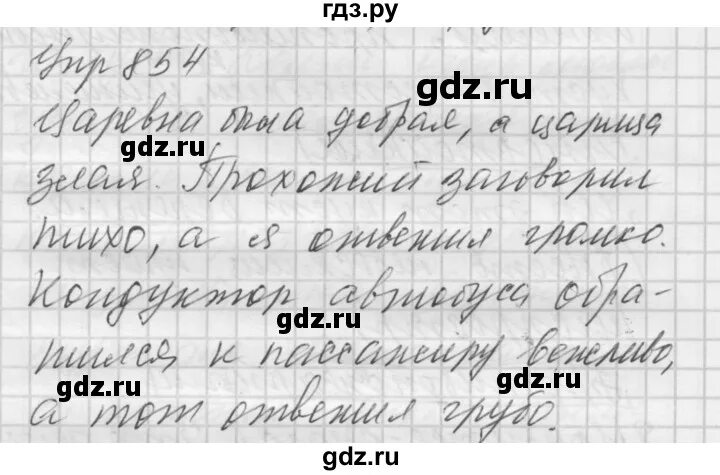 гдз.ру
Упр 854
gdz.ru
Царевна была добрая, а царица
gdz.ru
gdz.ru
злая. Прохожий заговорил
gdz.ru
тихо, а я ответил громко.
Кондуктор автобуса обра-
gdz.ru
тился к пассажиру вежливо,
gdz.ru
gdz.ru
а тот ответил грубо.